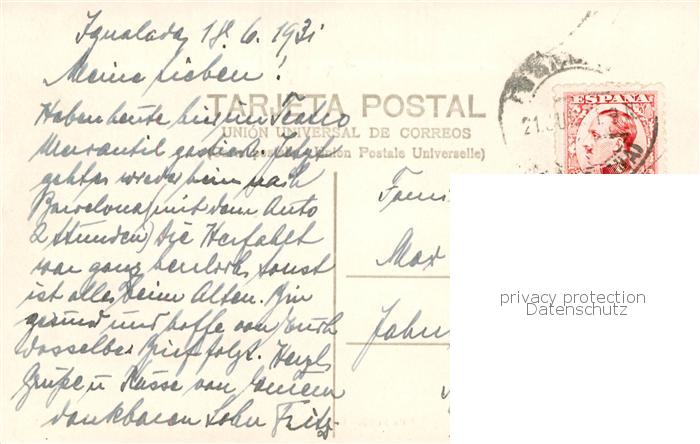 Igualada, 18. 6. 1931
Meine Lieben!
Haben heute hier im Teatro
Mercantil gastiert. Jetzt
gehts wieder heim nach
Barcelona (mit dem Auto
2 Stunden) Die Herfahrt
war ganz herrlich, sonst
ist alles beim Alten. Bin
gesund und hoffe von Euch
dasselbe. Brief folgt. Herzl.
Grüße u Küsse von Eurem
dankbaren Sohn Fritz.
TARJETA POSTAL
UNIÓN UNIVERSAL DE CORREOS
Postale (Unión Postale Universelle)
ESPAÑA
21.
Fam
Max
John
privacy protection
Datenschutz